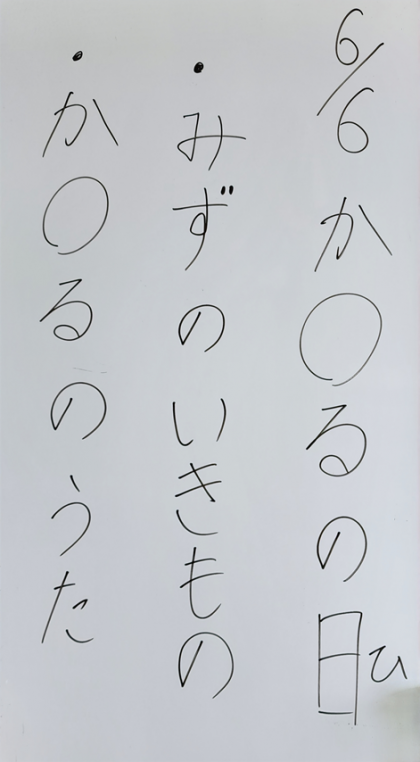 6/6 か〇るの日ひ
・みずのいきもの
・か〇るのうた